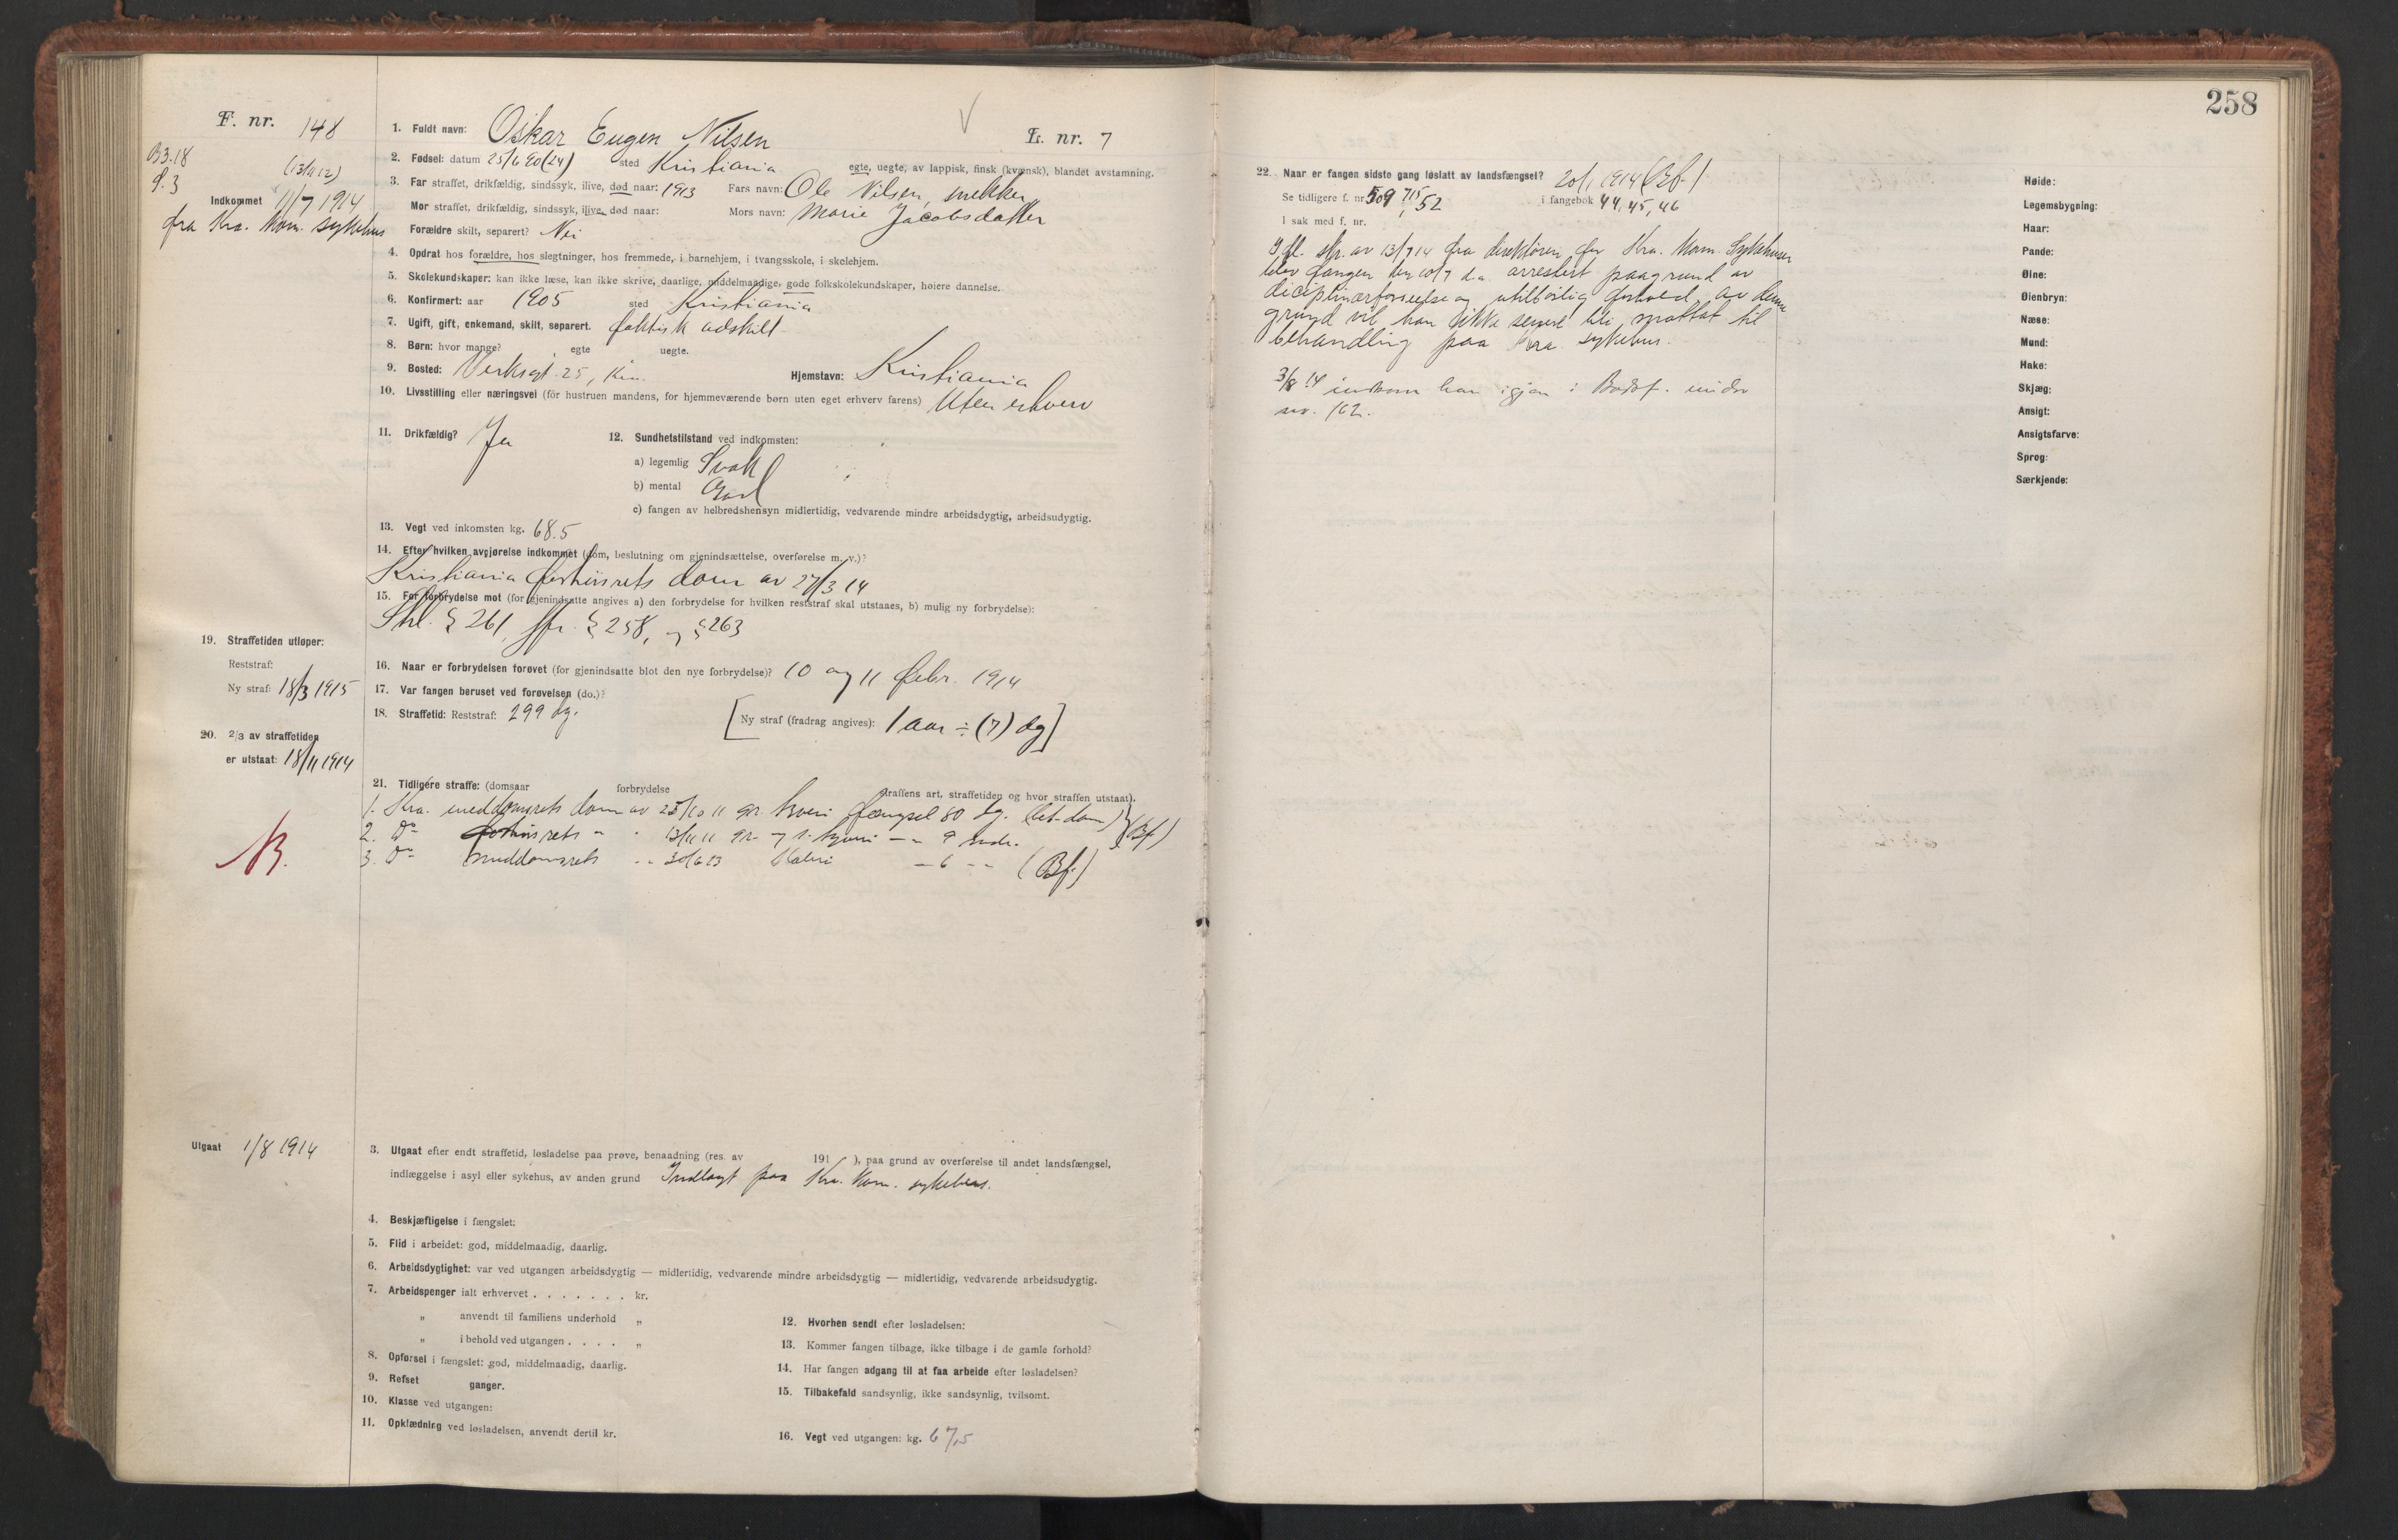 F. nr. 148
B3.18
P.3
(13/1 12)
Indkommet 11/7 1914
fra Kra. Kom. sykehus
19. Straffetiden utløper:
Reststraf:
Ny straf: 18/3 1915
20. 2/3 av straffetiden
er utstaat: 18/11 1914
Utgaat 1/8 1914
1. Fuldt navn: Oskar Eugen Nilsen L. nr. 7
2. Fødsel: datum 25/6 90 (24) sted Kristiania egte, uegte, av lappisk, finsk (kvænsk), blandet avstamning.
3. Far straffet, drikfældig, sindssyk, ilive, død naar: 1913 Fars navn: Ole Nilsen, snekker
Mor straffet, drikfældig, sindssyk, ilive, død naar: Mors navn: Marie Jacobsdatter
Forældre skilt, separert? Nei
4. Opdrat hos forældre, hos slegtninger, hos fremmede, i barnehjem, i tvangsskole, i skolehjem.
5. Skolekundskaper: kan ikke læse, kan ikke skrive, daarlige, middelmaadige, gode folkskolekundskaper, høiere dannelse.
6. Konfirmert: aar 1905 sted Kristiania
7. Ugift, gift, enkemand, skilt, separert. faktisk adskilt
8. Børn: hvor mange? egte uegte.
9. Bosted: Verksgt. 25, Kra. Hjemstavn: Kristiania
10. Livsstilling eller næringsvei (for hustruen mandens, for hjemmeværende børn uten eget erhverv farens) Uten erhverv
11. Drikfældig? Ja 12. Sundhetstilstand ved indkomsten:
a) legemlig Svak
b) mental God
c) fangen av helbredshensyn midlertidig, vedvarende mindre arbeidsdygtig, arbeidsudygtig.
13. Vegt ved inkomsten kg. 68.5
14. Efter hvilken avgjørelse indkommet (dom, beslutning om gjenindsættelse, overførelse m. v.)?
Kristiania forhørsrets dom av 27/3 14
15. For forbrydelse mot (for gjenindsatte angives a) den forbrydelse for hvilken reststraf skal utstaaes, b) mulig ny forbrydelse):
Strl. § 261, jfr. § 258, og § 263
16. Naar er forbrydelsen forøvet (for gjenindsatte blot den nye forbrydelse)? 10 og 11 febr. 1914
17. Var fangen beruset ved forøvelsen (do.)?
18. Straffetid: Reststraf: 299 dg. [Ny straf (fradrag angives): 1 aar ÷ (7) dg]
21. Tidligere straffe: (domsaar forbrydelse straffens art, straffetiden og hvor straffen utstaat).
1. Kra. meddomsrets dom av 25/10 11 gr. tyveri fængsel 80 dg. (bet. dom) } (Bf)
2. Do forhørsrets " " 13/11 11 gr. og s. tyveri — " 9 mdr.
3. Do meddomsrets " " 30/6 13 Heleri — 6 — " (Bf.)
3. Utgaat efter endt straffetid, løsladelse paa prøve, benaadning (res. av 191 ), paa grund av overførelse til andet landsfængsel,
indlæggelse i asyl eller sykehus, av anden grund Indlagt paa Kra. Kom. sykehus.
4. Beskjæftigelse i fængslet:
5. Flid i arbeidet: god, middelmaadig, daarlig.
6. Arbeidsdygtighet: var ved utgangen arbeidsdygtig — midlertidig, vedvarende mindre arbeidsdygtig — midlertidig, vedvarende arbeidsudygtig.
7. Arbeidspenger ialt erhvervet . . . . . . . kr.
„ anvendt til familiens underhold „
„ i behold ved utgangen . . . . „
8. Opførsel i fængslet: god, middelmaadig, daarlig.
9. Refset ganger.
10. Klasse ved utgangen:
11. Opklædning ved løsladelsen, anvendt dertil kr.
12. Hvorhen sendt efter løsladelsen:
13. Kommer fangen tilbage, ikke tilbage i de gamle forhold?
14. Har fangen adgang til at faa arbeide efter løsladelsen?
15. Tilbakefald sandsynlig, ikke sandsynlig, tvilsomt.
16. Vegt ved utgangen: kg. 67,5
258
22. Naar er fangen sidste gang løslatt av landsfængsel? 20/1 1914 (Bf.)
Se tidligere f. nr. 509, 715, 52 i fangebok 44, 45, 46
I sak med f. nr.
Ifl. skr. av 13/7 14 fra direktøren for Kra. Kom. Sykehuser
blev fangen den 10/7 d.a. arrestert paagrund av
diciplinærforseelse og utilbørlig forhold. Av denne
grund vil han ikke senere bli mottat til
behandling paa Kra. sykehus.
3/8 14 indkom han igjen i Bodsf. under
nr. 162.
Høide:
Legemsbygning:
Haar:
Pande:
Øine:
Øienbryn:
Næse:
Mund:
Hake:
Skjæg:
Ansigt:
Ansigtsfarve:
Sprog:
Særkjende: